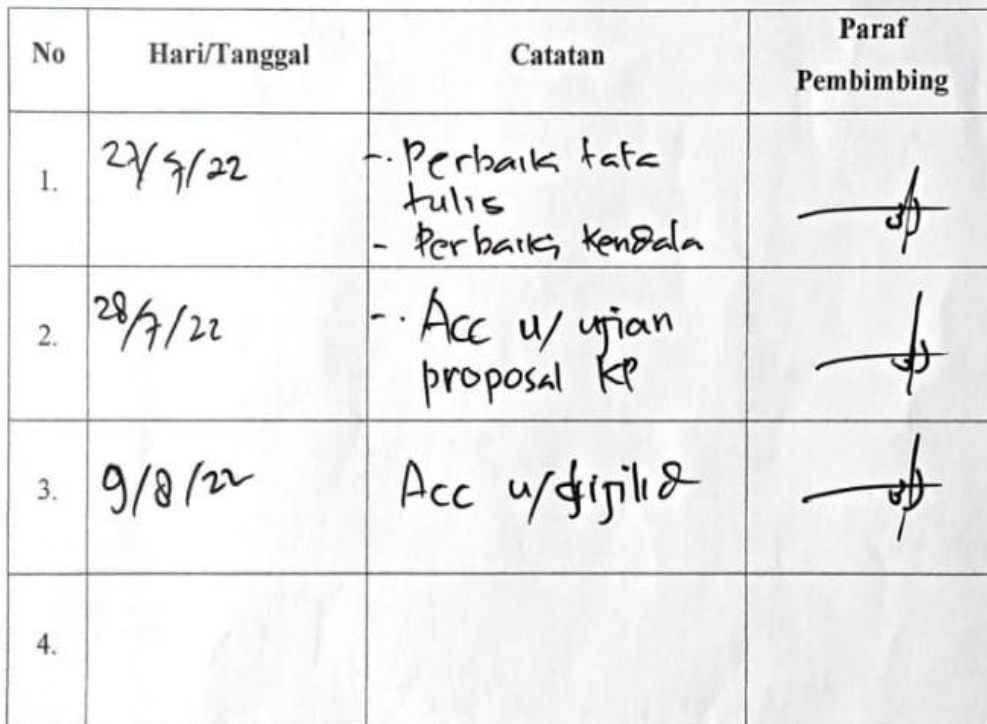 No Hari/Tanggal Catatan Paraf Pembimbing
1. 27/7/22 - Perbaiki tata
tulis
- Perbaiki Kendala
2. 28/7/22 - Acc u/ ujian
proposal KP
3. 9/8/22 Acc u/dijilid
4.